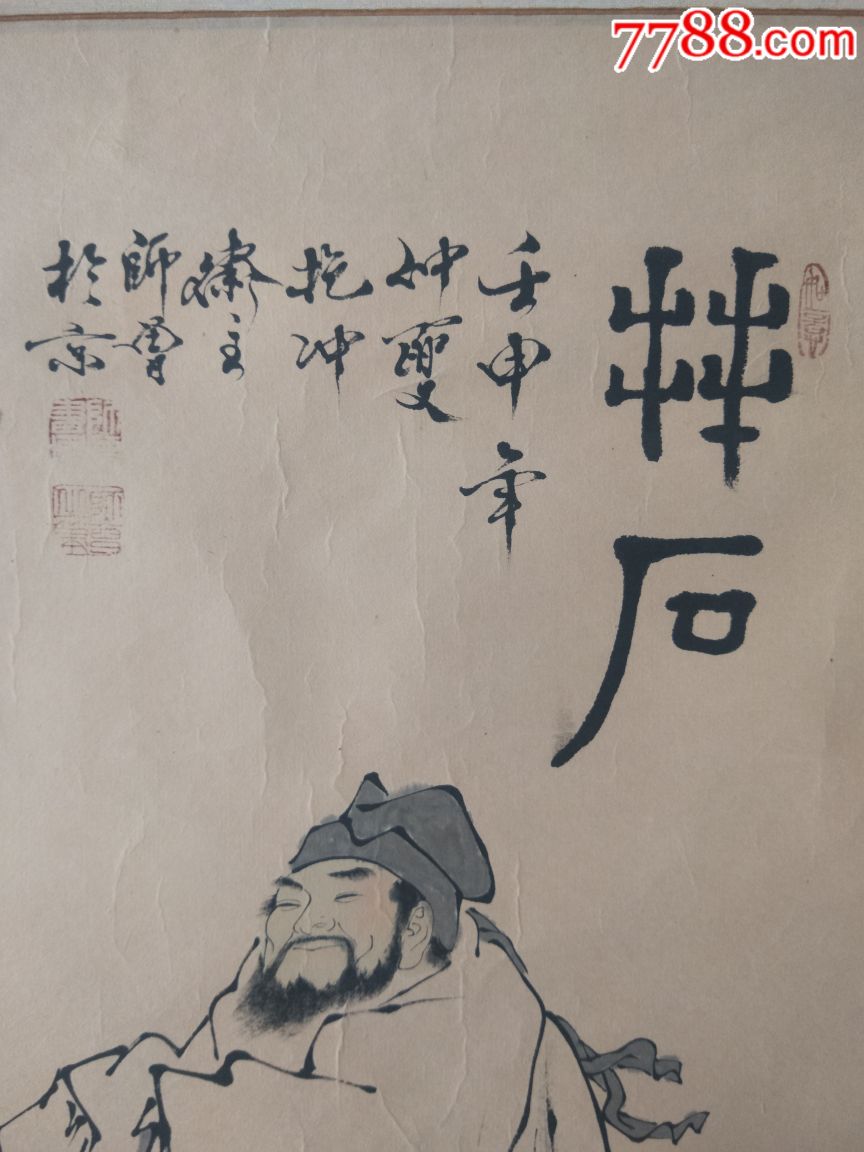 7788.com
拜石
壬申年
仲夏
抱冲
齋主
師
於京